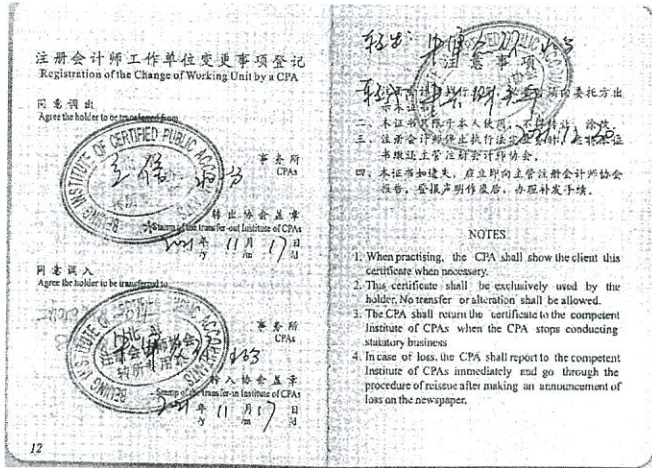 注册会计师工作单位变更事项登记
Registration of the Change of Working Unit by a CPA
同意调出
Agree the holder to be transferred from
BEIJING INSTITUTE OF CERTIFIED PUBLIC ACCOUNTANTS
立信
事务所
CPAs
转出协会盖章
Stamp of the transfer-out Institute of CPAs
2021年 11月 17日
/y /m /d
同意调入
Agree the holder to be transferred to
BEIJING INSTITUTE OF CERTIFIED PUBLIC ACCOUNTANTS
北京
注册会计师协会
转所专用章
事务所
CPAs
转入协会盖章
Stamp of the transfer-in Institute of CPAs
2021年 11月 17日
/y /m /d
12
注意事项
二、本证书只限于本人使用,不得转让、涂改。
三、注册会计师停止执行法定业务时,应将本证
书缴还主管注册会计师协会。
四、本证书如遗失,应立即向主管注册会计师协会
报告,登报声明作废后,办理补发手续。
2021.12.20
NOTES
1. When practising, the CPA shall show the client this
certificate when necessary.
2. This certificate shall be exclusively used by the
holder. No transfer or alteration shall be allowed.
3. The CPA shall return the certificate to the competent
Institute of CPAs when the CPA stops conducting
statutory business
4. In case of loss, the CPA shall report to the competent
Institute of CPAs immediately and go through the
procedure of reissue after making an announcement of
loss on the newspaper.